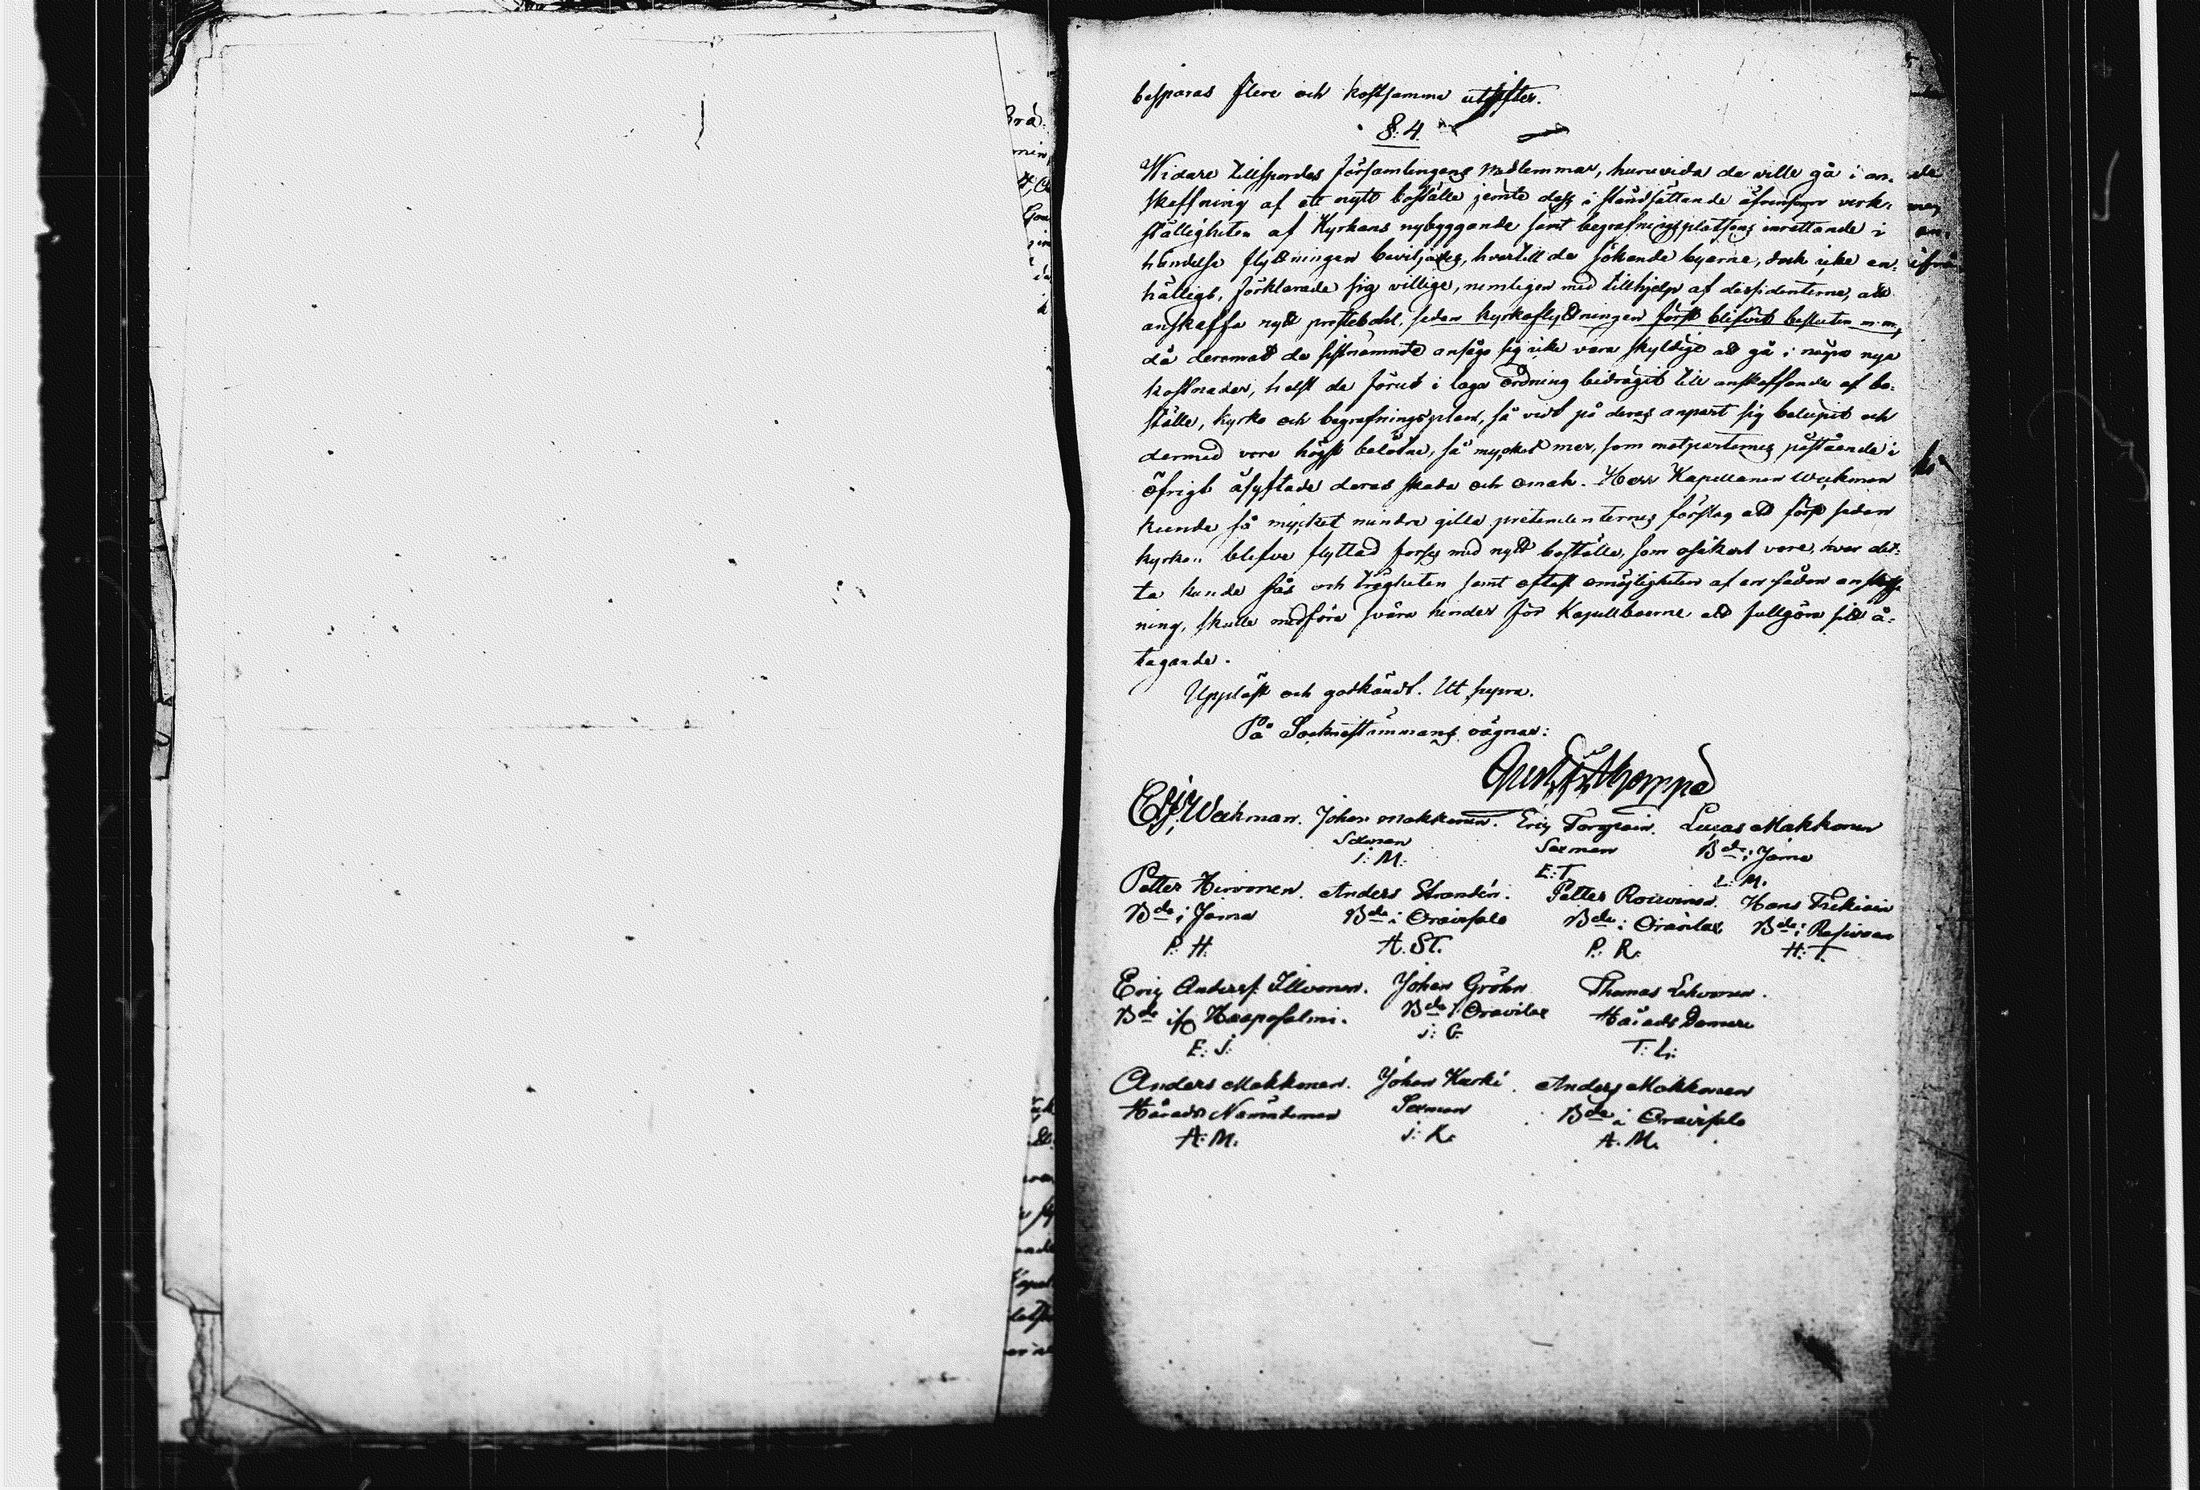 besparas flere och kostsamma utgifter.
§. 4.
Widare tillspordes församlingens medlemmar, huruvida de ville gå i an-
skaffning af ett nytt boställe jemte dess i ståndsättande äfvensom verk-
ställigheten af Kyrkans nybyggande samt begrafningsplatsens inrättande i
händelse flyttningen beviljades, hvartill de sökande byarne, dock icke en-
hälligt, förklarade sig villige, nemligen med tillhjelp af dissidenterne, att
anskaffa nytt prestebohl, sedan kyrkoflyttningen först blifvit besluten m.m.,
då deremot de sistnämnde ansågo sig icke vara skyldige att gå i några nya
kostnader, helst de förut i laga ordning bidragit till anskaffande af bo-
ställe, kyrko och begrafningsplan, så vidt på deras anpart sig belupit och
dermed vore högst belåtne, så mycket mer, som motparternes påstående i
öfrigt åsyftade deras skada och omak. Herr Kapellanen Weckman
kunde så mycket mindre gilla pretendenternes förslag att först sedan
kyrkan blifve flyttad förses med nytt boställe, som osäkert vore, hvar det-
ta kunde fås och trögheten samt oftast omöjligheten af en sådan anskaff-
ning, skulle medföra svåra hinder för Kapellboerne att fullgöra sitt å-
tagande.
Uppläst och godkändt. Ut supra.
På Socknestämmans vägnar:
Weckman. Johan Makkonen. Eric Torgvein. Lucas Makkonen
Sexman Sexman Bde i Jama
J: M: E: T. L: M.
Petter Hirvonen. Anders Strandén. Petter Rouvinen. Hans Tukiain
Bde i Jama Bde i Oravisalo Bde i Oravilax Bde i Rasivaara
P: H. A. ST. P: R. H: T.
Eric Anderss. Illvonen. Johan Gröhn Thomas Lehvonen.
Bde ifr Haapasalmi. Bde i Oravilax Härads Domare
E: J. J: G. T: L:
Anders Makkonen. Johan Karki. Anders Makkonen
Härads Nämndeman Sexman Bde i Oravisalo
A: M. J: K. A. M.